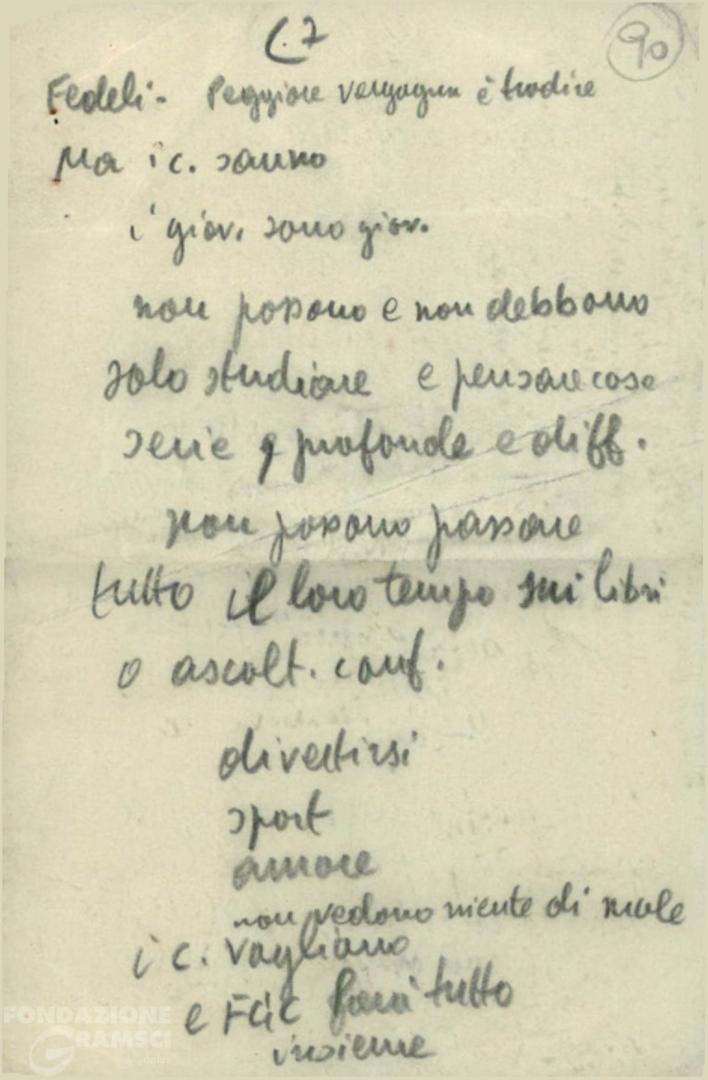 C. 7
90
Fedeli - Peggiore vergogna è tradire
Ma i c. sanno
i giov. sono giov.
non possono e non debbono
solo studiare e pensare cose
serie e profonde e diff.
non possono passare
tutto il loro tempo sui libri
o ascolt. conf.
divertirsi
sport
amore
non vedono niente di male
i c. vogliono
e FGC farà tutto
insieme
FONDAZIONE
GRAMSCI